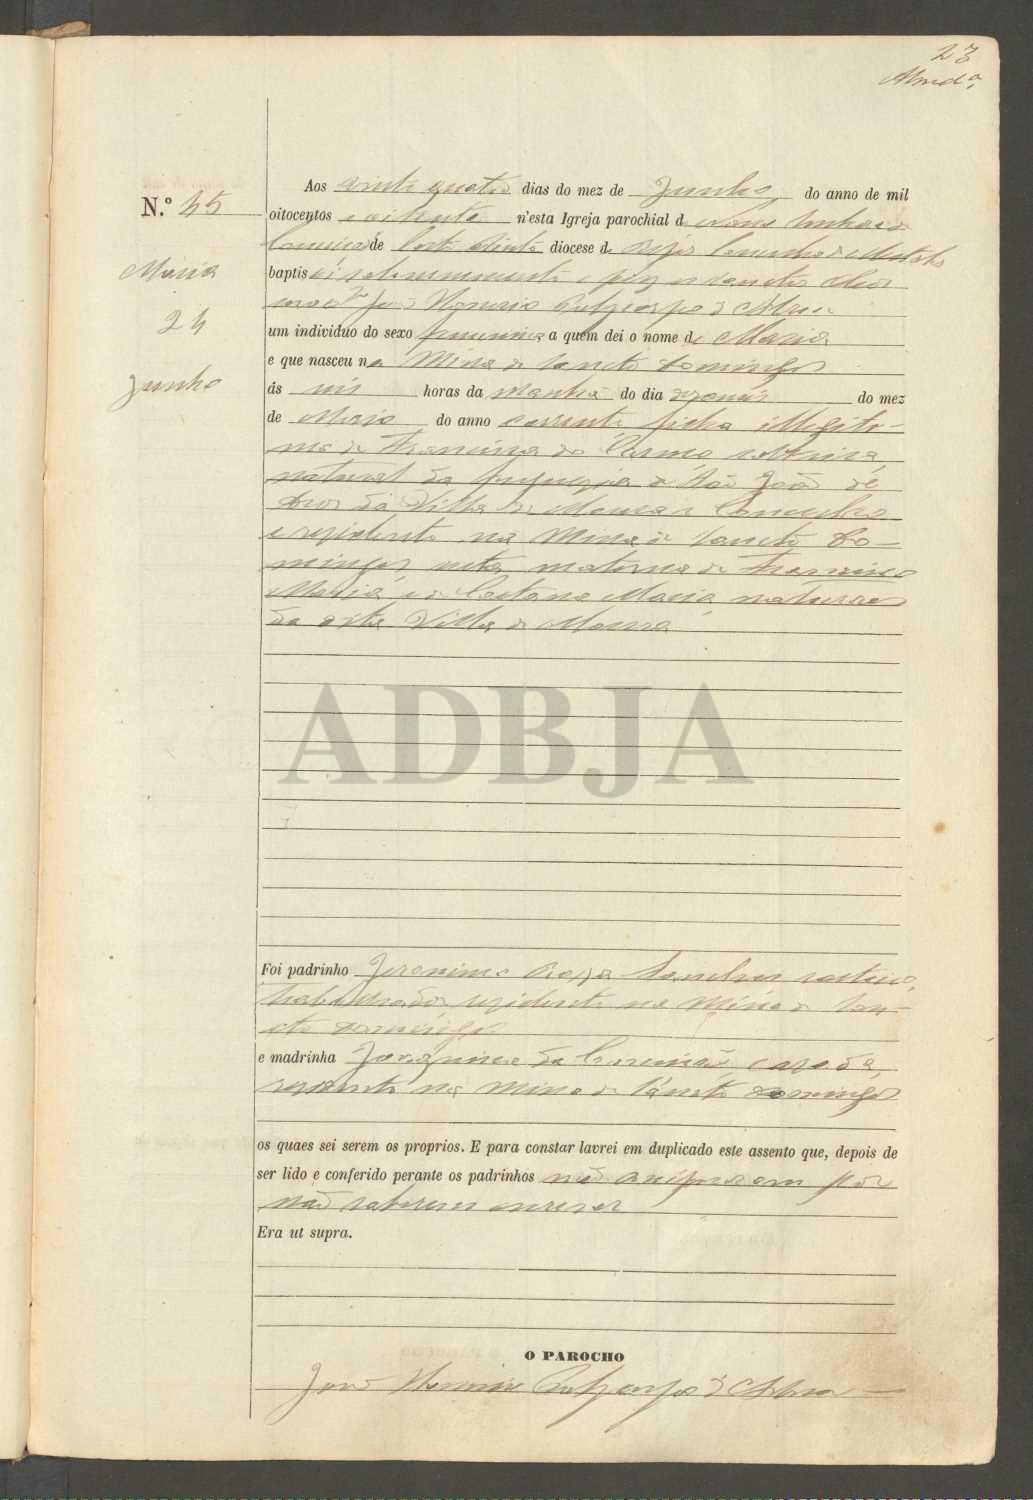 23
Almda
N.º 45
Maria
24
Junho
Aos vinte quatro dias do mez de Junho do anno de mil
oitocentos e oitenta n'esta Igreja parochial de Nossa Senhora da
Conceição de Corte Pinto diocese de Beja Concelho de Mertola
baptisei solemnemente e puz os sanctos oleos
José Honorio Polycarpo d'
um individuo do sexo femenino a quem dei o nome de Maria
e que nasceu na Mina de Sancto Domingos
ás seis horas da manhã do dia do mez
de Maio do anno corrente filha illegiti-
ma de Francisca do Carmo solteira
natural da freguezia de São João
da Villa de Moura Concelho
e rezidente na Mina de Sancto Do-
mingos neta materna de Francisco
Maria e de Caetana Maria naturaes
da dita Villa de Moura
ADBJA
Foi padrinho Jeronimo solteiro,
trabalhador, rezidente na Mina de San-
cto Domingos
e madrinha Joaquina da Conceição, cazada,
rezidente na Mina de Sancto Domingos
os quaes sei serem os proprios. E para constar lavrei em duplicado este assento que, depois de
ser lido e conferido perante os padrinhos não assignaram por
não saberem escrever
Era ut supra.
O PAROCHO
José Honorio Polycarpo d'